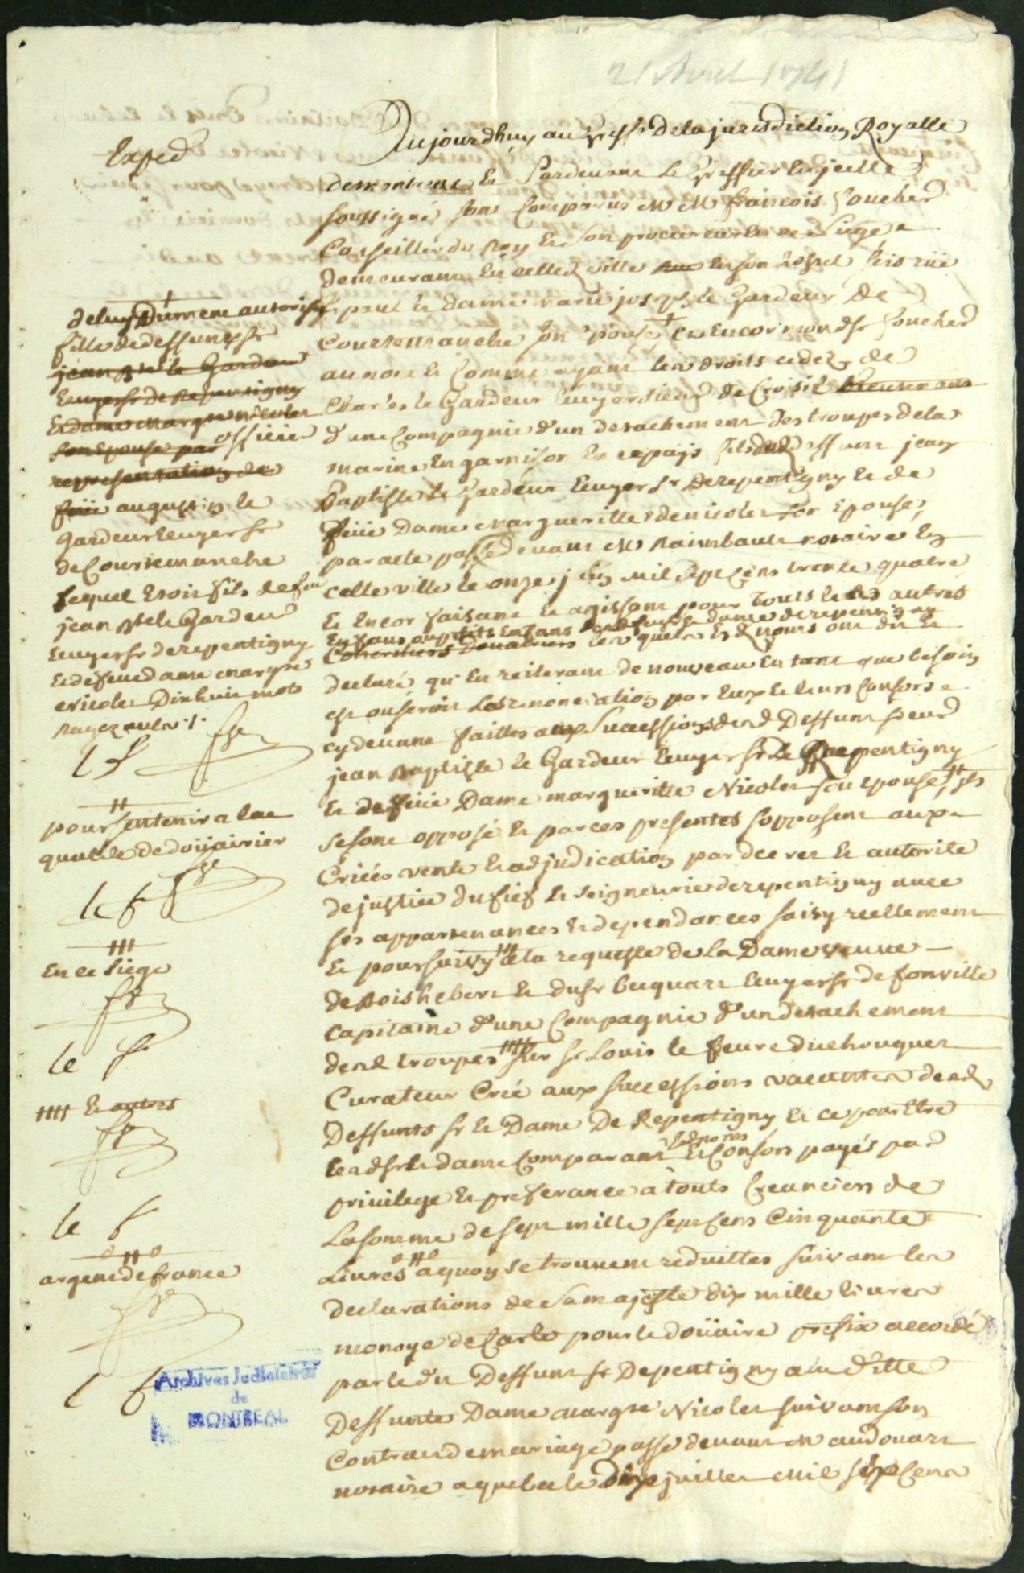 21 Avril 1741
Expéd
Aujourdhuy au greffe de la jurisdiction Royalle
de montreal & Pardevant Le Greffier d'icelle
soussigné sont Comparus M M françois foucher
Conseiller du Roy & son procureur
demeurant en cette ville en son hostel rue
st paul & dame marie joseph le Gardeur De
Courtemanche son Epouse & encor mondt sr foucher
au nom & Comme ayant les droits cedez de
Charles le Gardeur Ecuyer sieur de Croisil
d'une Compagnie d'un detachement des troupes de la
marine En garnison En ce pays fils de deffunt jean
Baptiste le Gardeur Ecuyer sr De repentigny & de
feüe Dame margueritte de nicolet son Epouse,
par acte passé devant M Raimbault notaire En
cette ville le onze juin mil sept Cens trente quatre
& Encor faisant & agissant pour touts les autres
Enfans
lesquels Esd noms ont dit &
declaré qu'En reiterant de nouveau En tant que besoin
est ou seroit Les renonciations par Eux & leurs Consors
cy devant faittes aux Successions desd Deffunt sieur
jean Baptiste le Gardeur Ecuyer sr de Repentigny
& deffüe Dame margueritte Nicolet son epouse, ils
se sont opposé & par ces presentes s'opposent aux
Criées vente & adjudication par decret & autorité
de justice du fief & seigneurie de repentigny avec
ses appartenances & dependances saisy reellement
& poursuivy a la requeste de La Dame veuve
de Boishebert & du sr Ecuyer sr de fonville
Capitaine d'une Compagnie d'un detachement
desd troupes sur sr Louis le feuvre duchouquet
Curateur Créé aux successions vacantes desd
Deffunts sr & Dame De Repentigny & ce pour Etre
lesd sr & dame Comparant Esd noms & Consors payés par
privilege & preferance a touts Creanciers de
La somme de sept mille sept Cens Cinquante
Livres a quoy se trouvent reduittes suivant les
declarations de sa majesté dix mille livres
monoye de Carte pour le doüaire prefix accordé
par le dit Deffunt sr Repentigny a la ditte
Deffunte Dame margte Nicolet suivant son
Contrat de mariage passé devant M audouart
notaire a quebec le dix juillet mil six Cens
de luy Dument autorisée
fille de deffunt sr
jean Bte le Gardeur
Ecuyer sr de Repentigny
& dame margte nicolet
son Epouse par
representation de
feüe augustin le
Gardeur Ecuyer sr
de Courtemanche
Lequel Etoit fils de feu
jean Bte le Gardeur
Ecuyer sr de repentigny
& de feue dame margte
nicolet Dix huit mots
Rayez nuls
officier
l f
pour s'en tenir a leur
qualité de doüairier
le f
En ce siege
le f
& autres
le f
argent de france
l f
Archives Judiciaires
de
MONTREAL